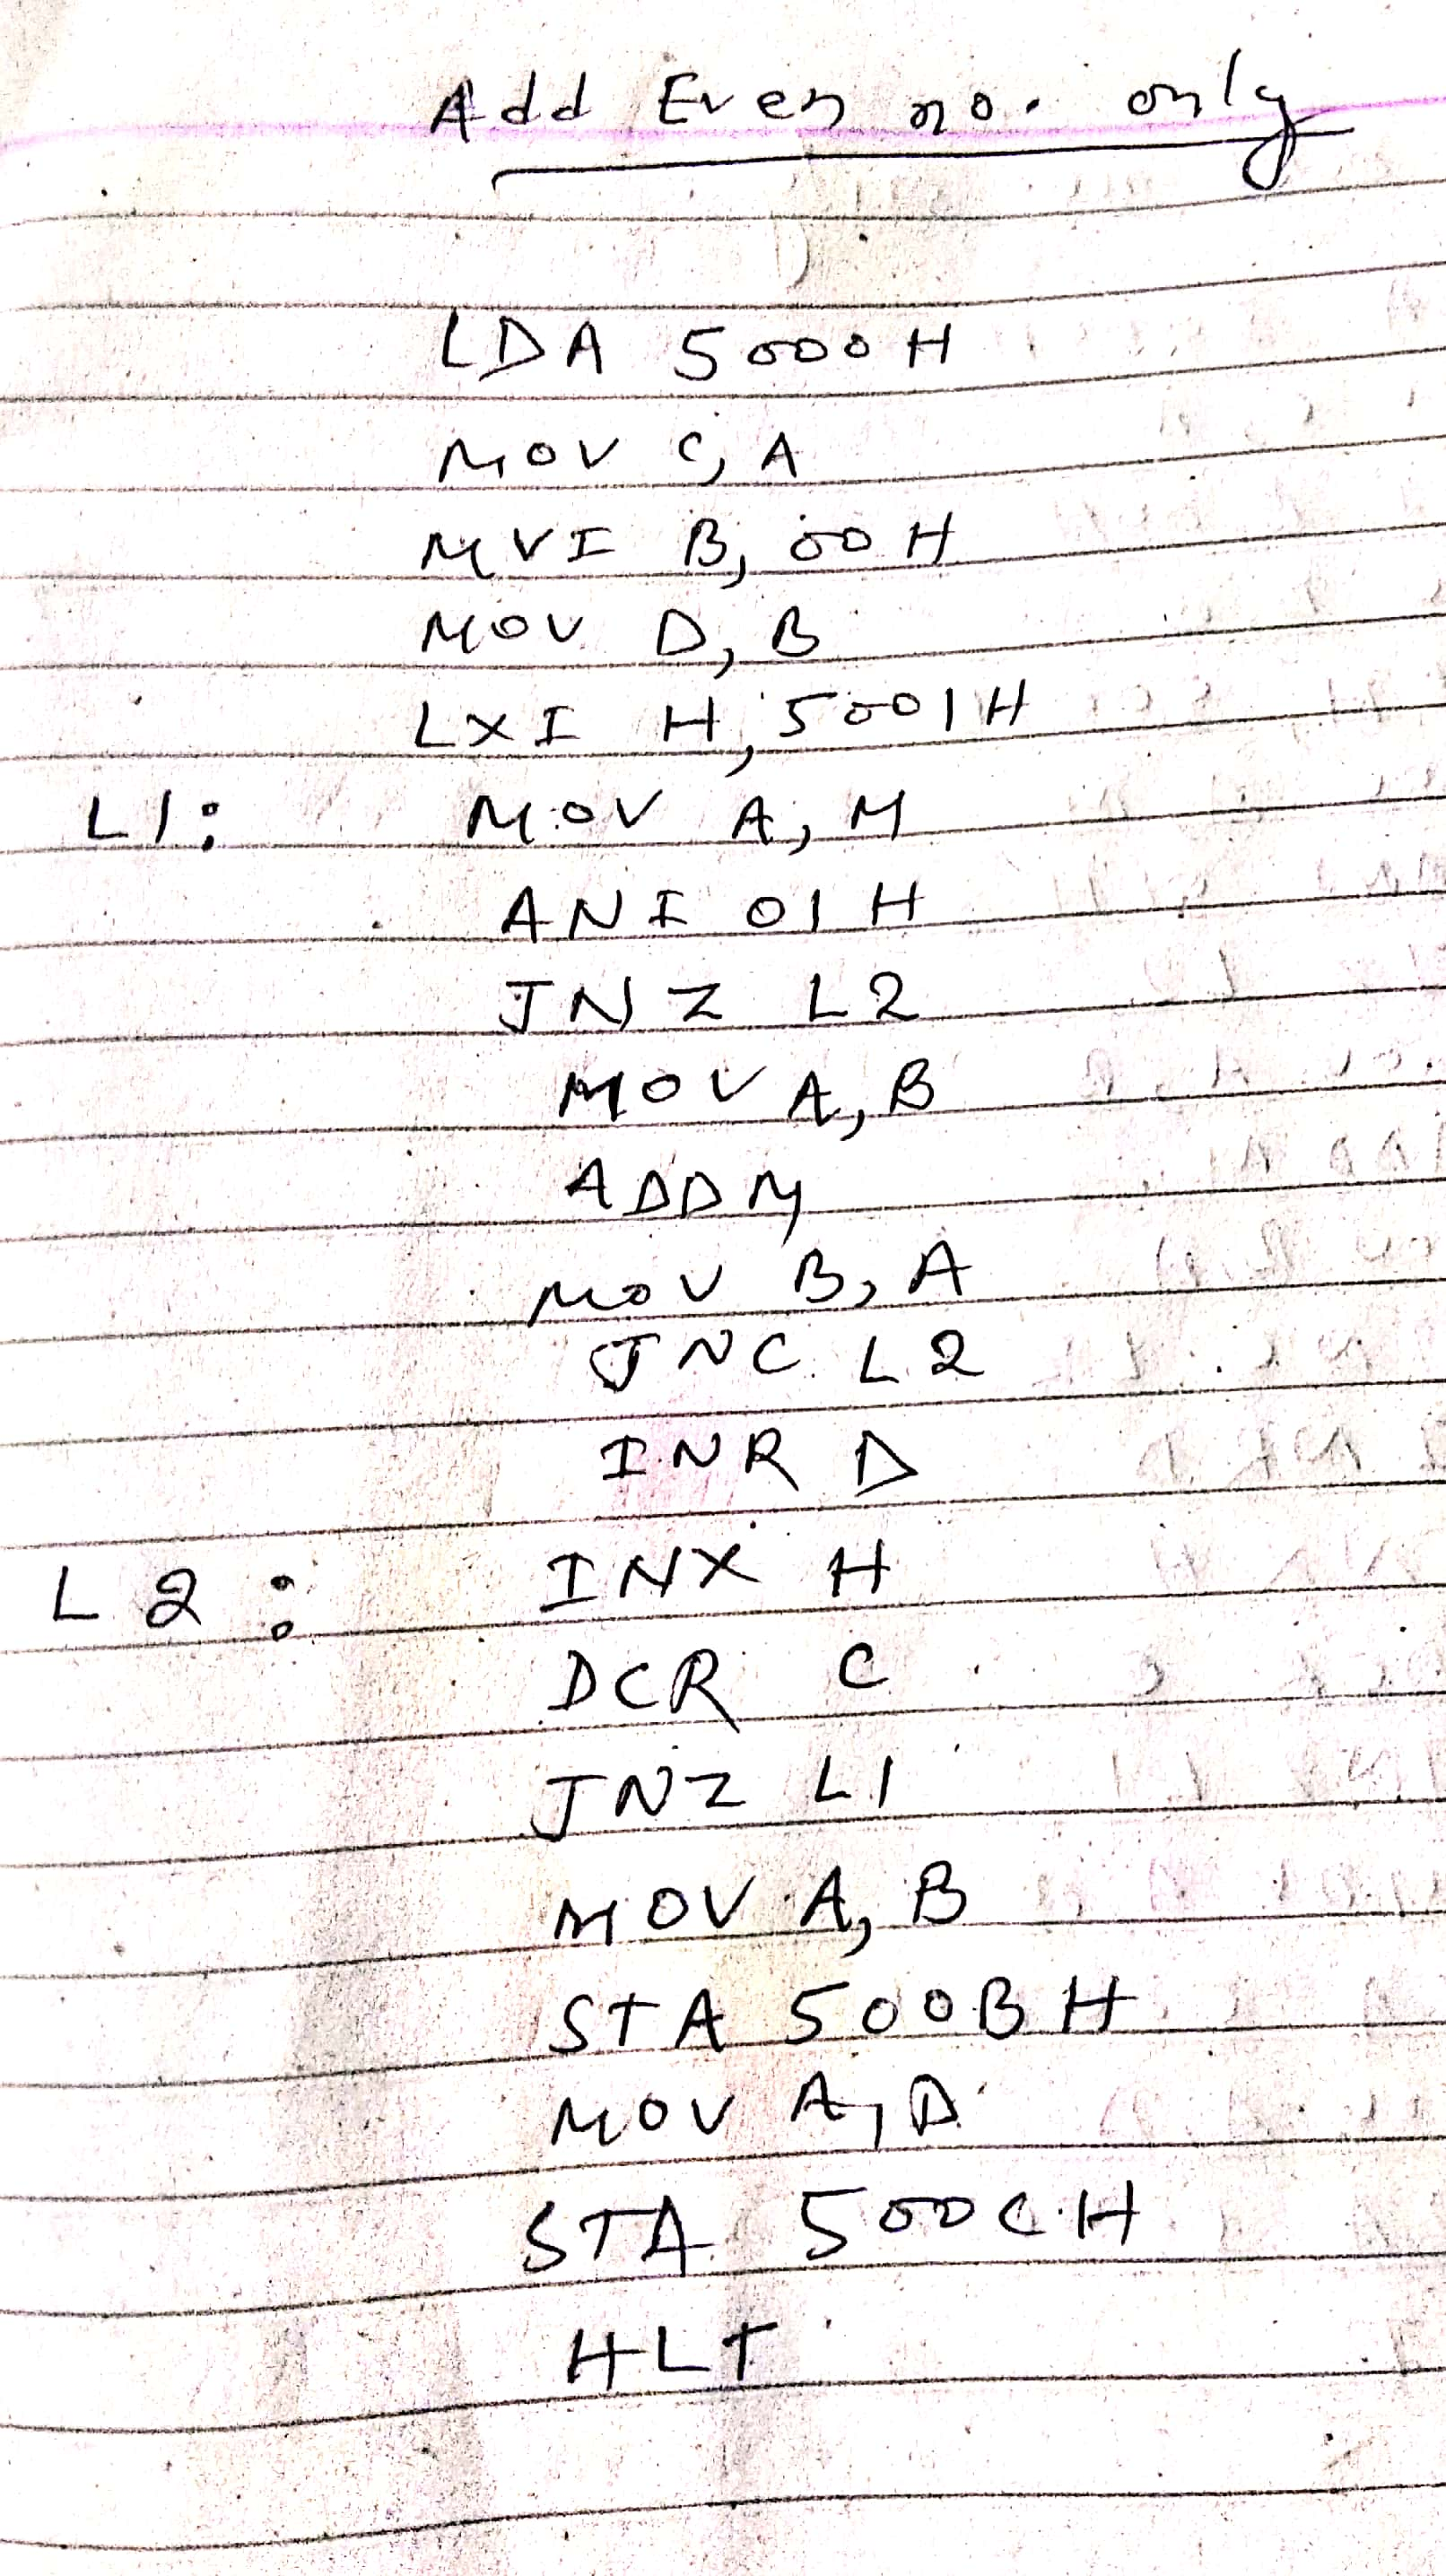 Add Even no. only
LDA 5000H
MOV C, A
MVI B, 00H
MOV D, B
LXI H, 5001H
L1: MOV A, M
ANI 01H
JNZ L2
MOV A, B
ADD M
MOV B, A
JNC L2
INR D
L2: INX H
DCR C
JNZ L1
MOV A, B
STA 500BH
MOV A, D
STA 500CH
HLT